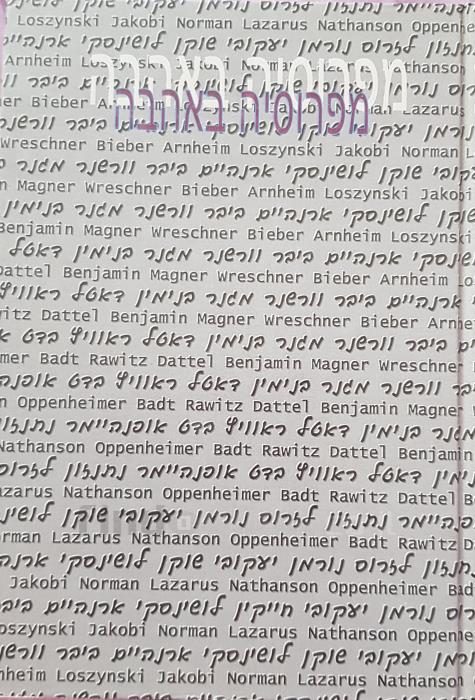 יעקובי שוקן נורמן לזרוס נתנזון אופנהיימר
Loszynski Jakobi Norman Lazarus Nathanson Oppenhe
נתנזון לזרוס נורמן יעקובי שוקן לושינסקי ארנהיים
Arnheim Loszynski Jakobi Norman Lazarus Nathanson
מפרוסיה באהבה
Bieber Arnheim Jakobi Norman Lazarus
Wreschner Bieber Arnheim Loszynski Jakobi Norman L
יעקובי שוקן לושינסקי ארנהיים ביבר וורשנר מגנר
n Magner Wreschner Bieber Arnheim Loszynski Jakobi
שוקן לושינסקי ארנהיים ביבר וורשנר מגנר בנימין
Benjamin Magner Wreschner Bieber Arnheim Loszynski
לושינסקי ארנהיים ביבר וורשנר מגנר בנימין דאטל
Dattel Benjamin Magner Wreschner Bieber Arnheim Lo
ארנהיים ביבר וורשנר מגנר בנימין דאטל ראוויץ
itz Dattel Benjamin Magner Wreschner Bieber Arnhe
ביבר וורשנר מגנר בנימין דאטל ראוויץ בדט
mer Badt Rawitz Dattel Benjamin Magner Wreschner
וורשנר מגנר בנימין דאטל ראוויץ בדט אופנה
n Oppenheimer Badt Rawitz Dattel Benjamin Magner
מגנר בנימין דאטל ראוויץ בדט אופנהיימר נתנזון
Nathanson Oppenheimer Badt Rawitz Dattel Benjamin
בנימין דאטל ראוויץ בדט אופנהיימר נתנזון לזרוס
azarus Nathanson Oppenheimer Badt Rawitz Dattel B
אופנהיימר נתנזון לזרוס נורמן יעקובי שוקן לושינ
rman Lazarus Nathanson Oppenheimer Badt Rawitz D
נתנזון לזרוס נורמן יעקובי שוקן לושינסקי ארנה
Jakobi Norman Lazarus Nathanson Oppenheimer Bad
נורמן יעקובי חייקין לושינסקי ארנהיים ביבר
oszynski Jakobi Norman Lazarus Nathanson Oppenhe
נורמן יעקובי שוקן לושינסקי ארנהיים ביבר וורשנר
nheim Loszynski Jakobi Norman Lazarus Nathanson